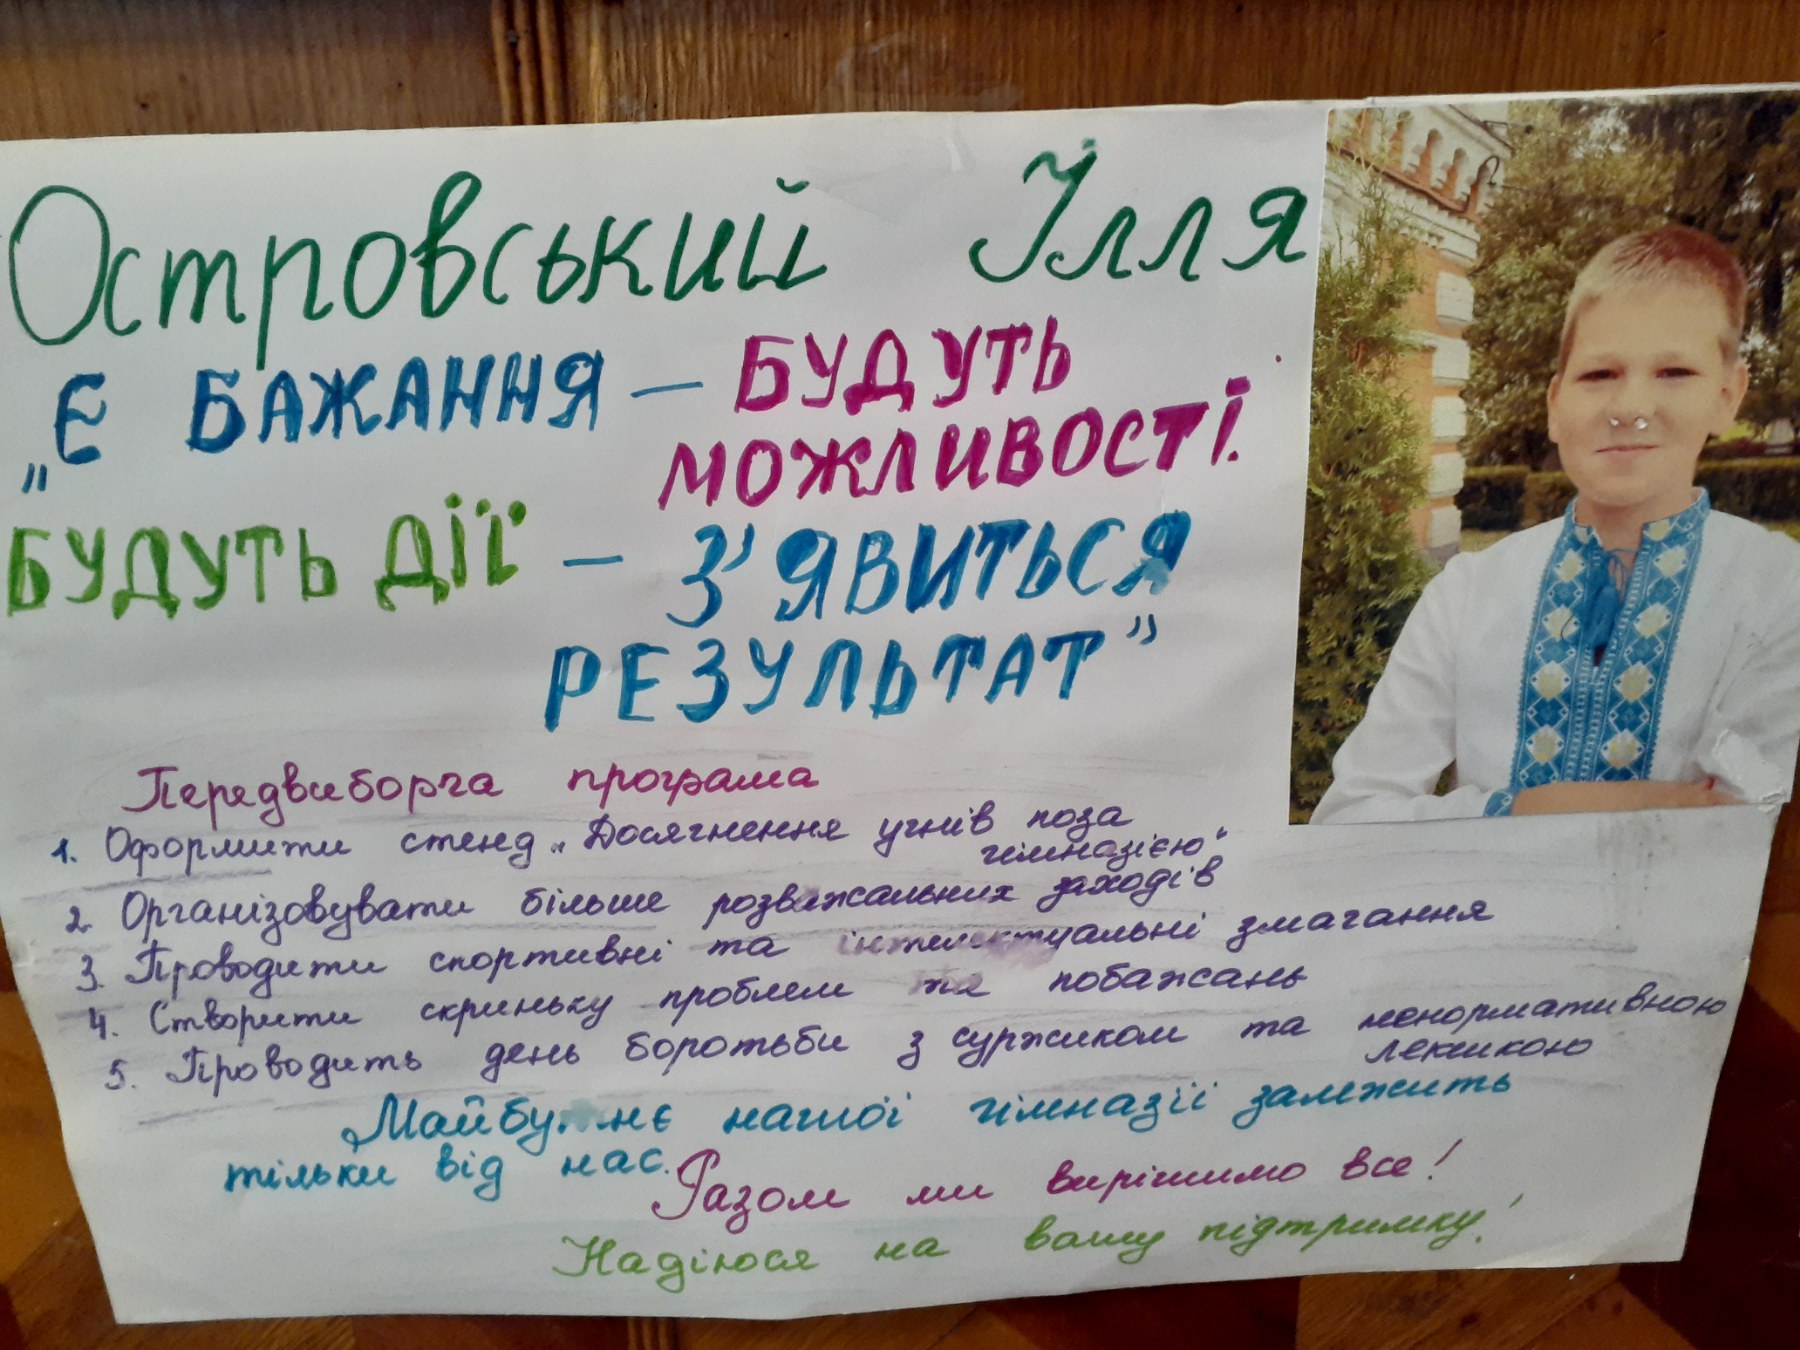 Островський Ілля
„Є БАЖАННЯ – БУДУТЬ
МОЖЛИВОСТІ.
БУДУТЬ ДІЇ – З'ЯВИТЬСЯ
РЕЗУЛЬТАТ"
Передвиборча програма
1. Оформити стенд „Досягнення учнів поза
гімназією"
2. Організовувати більше розважальних заходів
3. Проводити спортивні та інтелектуальні змагання
4. Створити скриньку проблем та побажань
5. Проводить день боротьби з суржиком та ненормативною
лексикою
Майбутнє нашої гімназії залежить
тільки від нас.
Разом ми вирішимо все!
Надіюся на вашу підтримку!